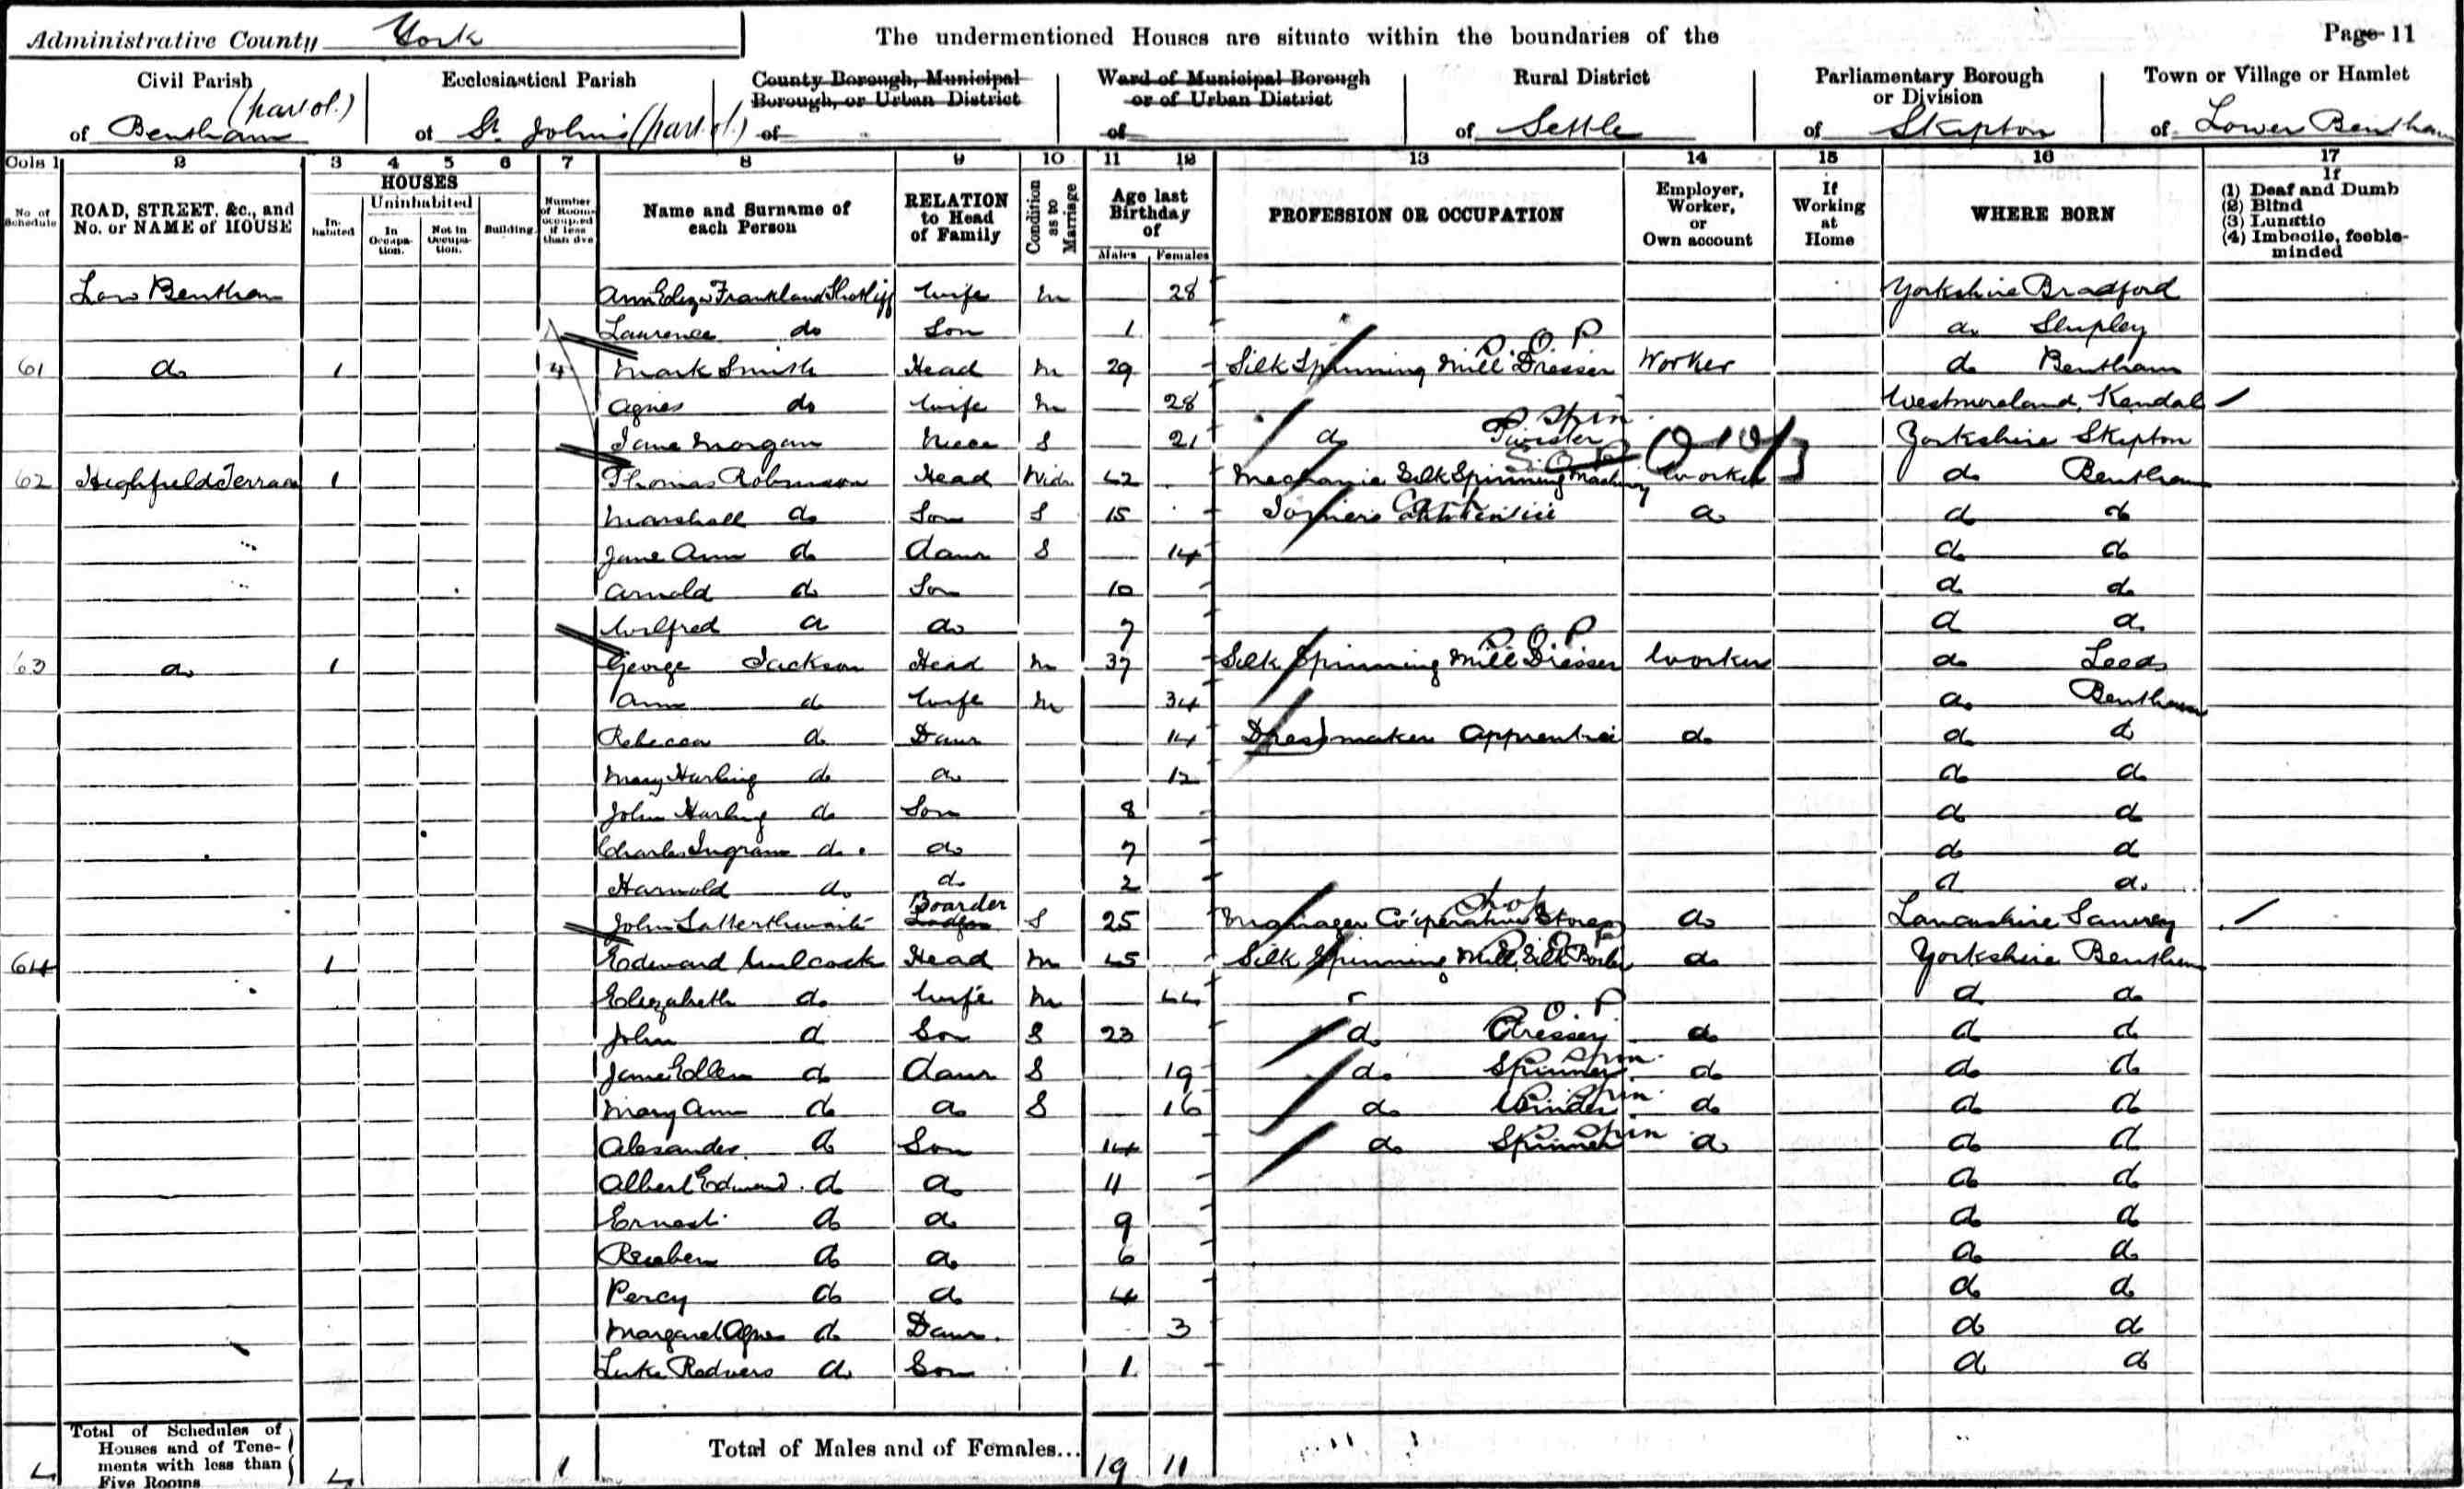 Administrative County York The undermentioned Houses are situate within the boundaries of the Page 11
Civil Parish Ecclesiastical Parish County Borough, Municipal Borough, or Urban District Ward of Municipal Borough or of Urban District Rural District Parliamentary Borough or Division Town or Village or Hamlet
of Bentham (part of.) of St. John's (part of.) of of of Settle of Skipton of Lower Bentham
Cols 1 2 3 4 5 6 7 8 9 10 11 12 13 14 15 16 17
No. of Schedule ROAD, STREET, &c., and No. or NAME of HOUSE HOUSES Inhabited Uninhabited In Occupation. Not in Occupation. Building Number of Rooms occupied if less than five Name and Surname of each Person RELATION to Head of Family Condition as to Marriage Age last Birthday of Males Females PROFESSION OR OCCUPATION Employer, Worker, or Own account If Working at Home WHERE BORN If (1) Deaf and Dumb (2) Blind (3) Lunatic (4) Imbecile, feeble-minded
Low Bentham Ann Eliza Frankland Shotliff Wife M 28 Yorkshire Bradford
Laurence do Son 1 do Shipley
61 do 1 4 Mark Smith Head M 29 Silk Spinning Mill Dresser S.O.P Worker do Bentham
Agnes do Wife M 28 Westmoreland, Kendal
Jane Morgan Niece S 21 do Twister S Spin Yorkshire Skipton
62 Highfield Terrace 1 Thomas Robinson Head Widr 42 Mechanic Silk Spinning Machinery Worker do Bentham
Marshall do Son S 15 Joiners Apprentice do do do
Jane Ann do Daur S 14 do do
Arnold do Son 10 do do
Wilfred do do 7 do do
63 do 1 George Jackson Head M 37 Silk Spinning Mill Dresser S.O.P Worker do Leeds
Ann do Wife M 34 do Bentham
Rebecca do Daur 14 Dressmaker Apprentice do do do
Mary Harling do do 12 do do
John Harling do Son 8 do do
Charles Ingram do do 7 do do
Harnold do do 2 do do
John Satterthwaite Lodger Boarder S 25 Manager Co'operative Stores Shop do Lancashire Sawrey
64 1 Edward Wilcock Head M 45 Silk Spinning Mill, Silk Boiler do Yorkshire Bentham
Elizabeth do Wife M 44 do do
John do Son S 23 do Dresser S.O.P. do do do
Jane Ellen do Daur S 19 do Spinner S Spin do do do
Mary Ann do do S 16 do Winder Spin do do do
Alexander do Son 14 do Spinner S Spin do do do
Albert Edward do do 11 do do
Ernest do do 9 do do
Reuben do do 6 do do
Percy do do 4 do do
Margaret Agnes do Daur. 3 do do
Luke Redvers do Son 1 do do
4 Total of Schedules of Houses and of Tenements with less than Five Rooms 4 1 Total of Males and of Females... 19 11